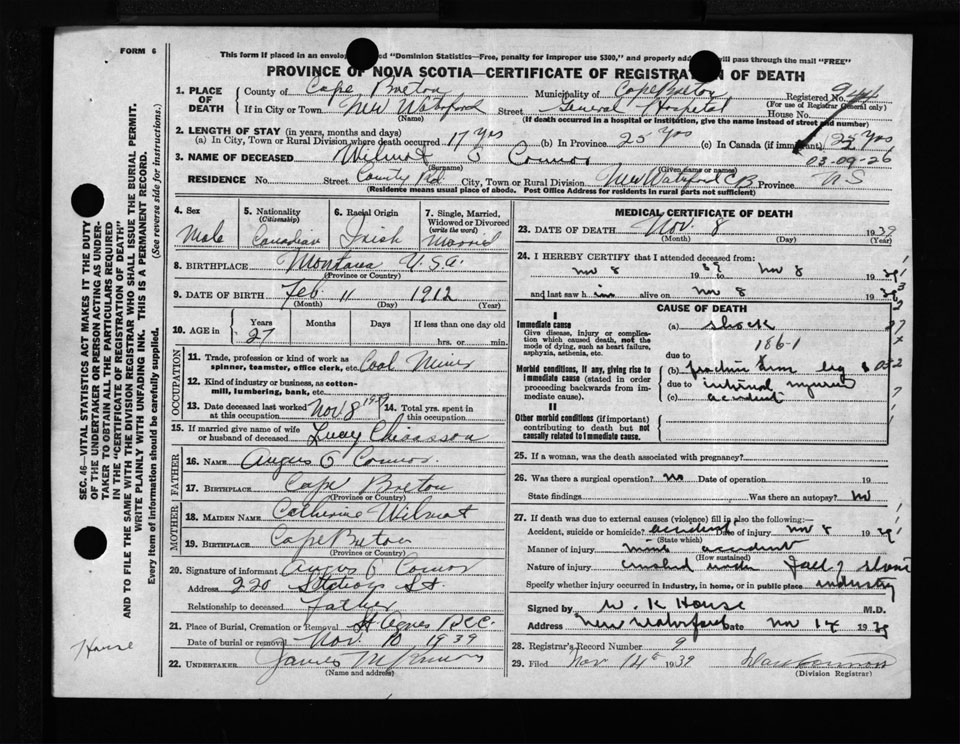 FORM 6
This form if placed in an envelop ed "Dominion Statistics—Free, penalty for improper use $300," and properly add will pass through the mail "FREE"
PROVINCE OF NOVA SCOTIA—CERTIFICATE OF REGISTRATION OF DEATH
1. PLACE OF DEATH
County of Cape Breton Municipality of Cape Breton Registered No.
(For use of Registrar General only)
If in City or Town New Waterford Street General Hospital House No.
(Name) (If death occurred in a hospital or institution, give the name instead of street and number)
2. LENGTH OF STAY (in years, months and days)
(a) In City, Town or Rural Division where death occurred 17 yrs (b) In Province 25 yrs (c) In Canada (if immigrant) 25 yrs
3. NAME OF DECEASED Wilmot O Connor 03-09-26
(Surname) (Given name or names)
RESIDENCE No. Street County Rd City, Town or Rural Division New Waterford C B Province N S
(Residence means usual place of abode. Post Office Address for Residents in rural parts not sufficient)
4. Sex Male
5. Nationality (Citizenship) Canadian
6. Racial Origin Irish
7. Single, Married, Widowed or Divorced (write the word) Married
8. BIRTHPLACE Montana U.S.A.
(Province or Country)
9. DATE OF BIRTH Feb. 11 1912
(Month) (Day) (Year)
10. AGE in Years Months Days If less than one day old
27 hrs. or min.
OCCUPATION
11. Trade, profession or kind of work as spinner, teamster, office clerk, etc. Coal Miner
12. Kind of industry or business, as cotton-mill, lumbering, bank, etc.
13. Date deceased last worked at this occupation Nov. 8 1939 14. Total yrs. spent in this occupation
15. If married give name of wife or husband of deceased Lucy Chiasson
FATHER
16. NAME Angus O Connor
17. BIRTHPLACE Cape Breton
(Province or Country)
MOTHER
18. MAIDEN NAME Catherine Wilmot
19. BIRTHPLACE Cape Breton
(Province or Country)
20. Signature of informant Angus O Connor
Address 220 St
Relationship to deceased Father
21. Place of Burial, Cremation or Removal St Agnes
Date of burial or removal Nov. 10 1939
22. UNDERTAKER James
(Name and address)
MEDICAL CERTIFICATE OF DEATH
23. DATE OF DEATH Nov. 8 1939
(Month) (Day) (Year)
24. I HEREBY CERTIFY that I attended deceased from:
Nov 8 1939 to Nov 8 1939
and last saw him alive on Nov 8 1939
CAUSE OF DEATH
I
Immediate cause (a) shock
Give disease, injury or complication which caused death, not the mode of dying, such as heart failure, asphyxia, asthenia, etc.
186-1
due to
Morbid conditions, if any, giving rise to immediate cause (stated in order proceeding backwards from immediate cause).
(b) fracture leg &
due to internal injuries
(c) accident
II
Other morbid conditions (if important) contributing to death but not causally related to immediate cause.
25. If a woman, was the death associated with pregnancy?
26. Was there a surgical operation? no Date of operation 19
State findings Was there an autopsy? no
27. If death was due to external causes (violence) fill in also the following:—
Accident, suicide or homicide? accident Date of injury Nov 8 1939
(State which)
Manner of injury mine accident
(How sustained)
Nature of injury crushed under fall of stone
Specify whether injury occurred in industry, in home, or in public place industry
Signed by W. K House M.D.
Address New Waterford Date Nov 14 1939
28. Registrar's Record Number 9
29. Filed Nov 14th 1939
(Division Registrar)
SEC. 46—VITAL STATISTICS ACT MAKES IT THE DUTY
OF THE UNDERTAKER OR PERSON ACTING AS UNDER-
TAKER TO OBTAIN ALL THE PARTICULARS REQUIRED
IN THE "CERTIFICATE OF REGISTRATION OF DEATH"
AND TO FILE THE SAME WITH THE DIVISION REGISTRAR WHO SHALL ISSUE THE BURIAL PERMIT.
WRITE PLAINLY WITH UNFADING INK. THIS IS A PERMANENT RECORD.
Every item of information should be carefully supplied. (See reverse side for instructions.)
House